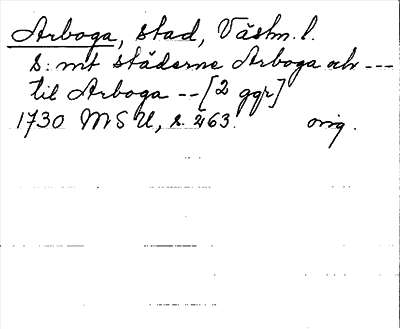 Arboga, stad, Västm. l.
s: mt städerne Arboga och ---
til Arboga -- [2 ggr]
1730 MSU, s. 463. orig.